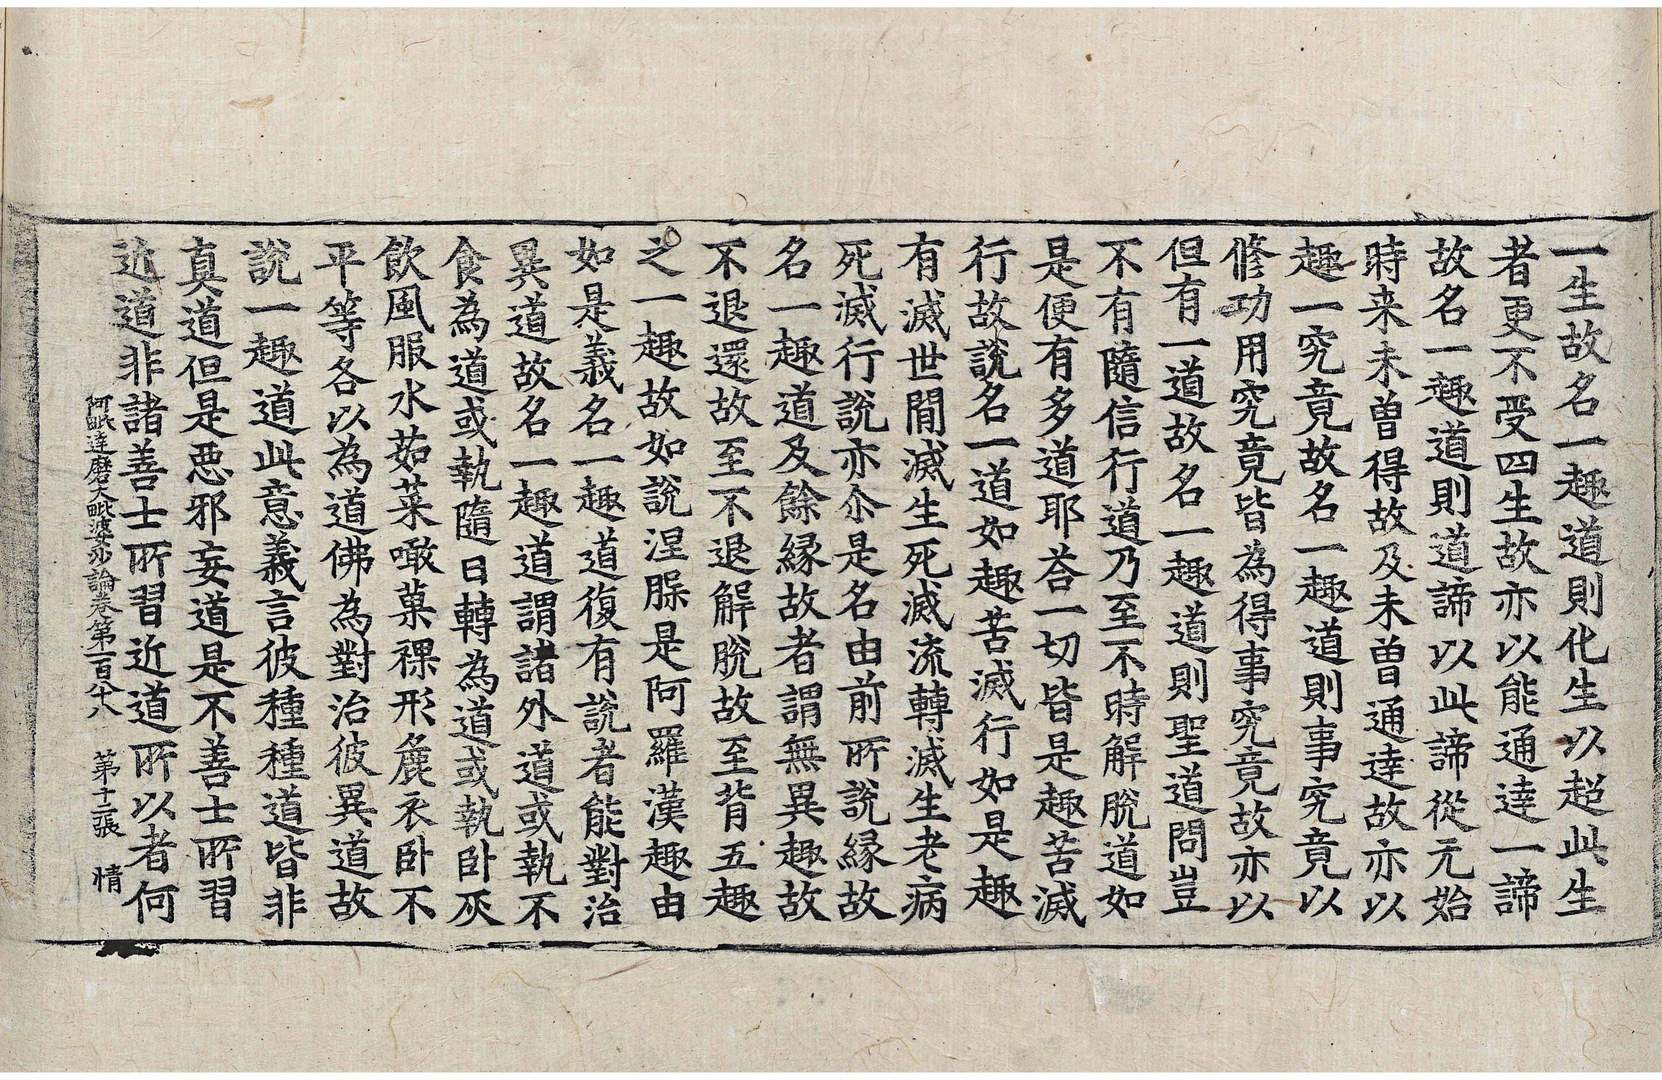 一生故名一趣道則化生以超此生
者更不受四生故亦以能通達一諦
故名一趣道則道諦以此諦從元始
時来未曾得故及未曾通達故亦以
趣一究竟故名一趣道則事究竟以
修功用究竟皆為得事究竟故亦以
但有一道故名一趣道則聖道問豈
不有隨信行道乃至不時解脫道如
是便有多道耶荅一切皆是趣苦滅
行故說名一道如趣苦滅行如是趣
有滅世間滅生死滅流轉滅生老病
死滅行說亦尒是名由前所說縁故
名一趣道及餘縁故者謂無異趣故
不退還故至不退解脫故至背五趣
之一趣故如說涅槃是阿羅漢趣由
如是義名一趣道復有說者能對治
異道故名一趣道謂諸外道或執不
食為道或執隨日轉為道或執卧灰
飲風服水茹菜噉菓裸形麁衣卧不
平等各以為道佛為對治彼異道故
說一趣道此意義言彼種種道皆非
真道但是惡邪妄道是不善士所習
近道非諸善士所習近道所以者何
阿毗達磨大毗婆沙論卷第一百八十八 第十二張 情